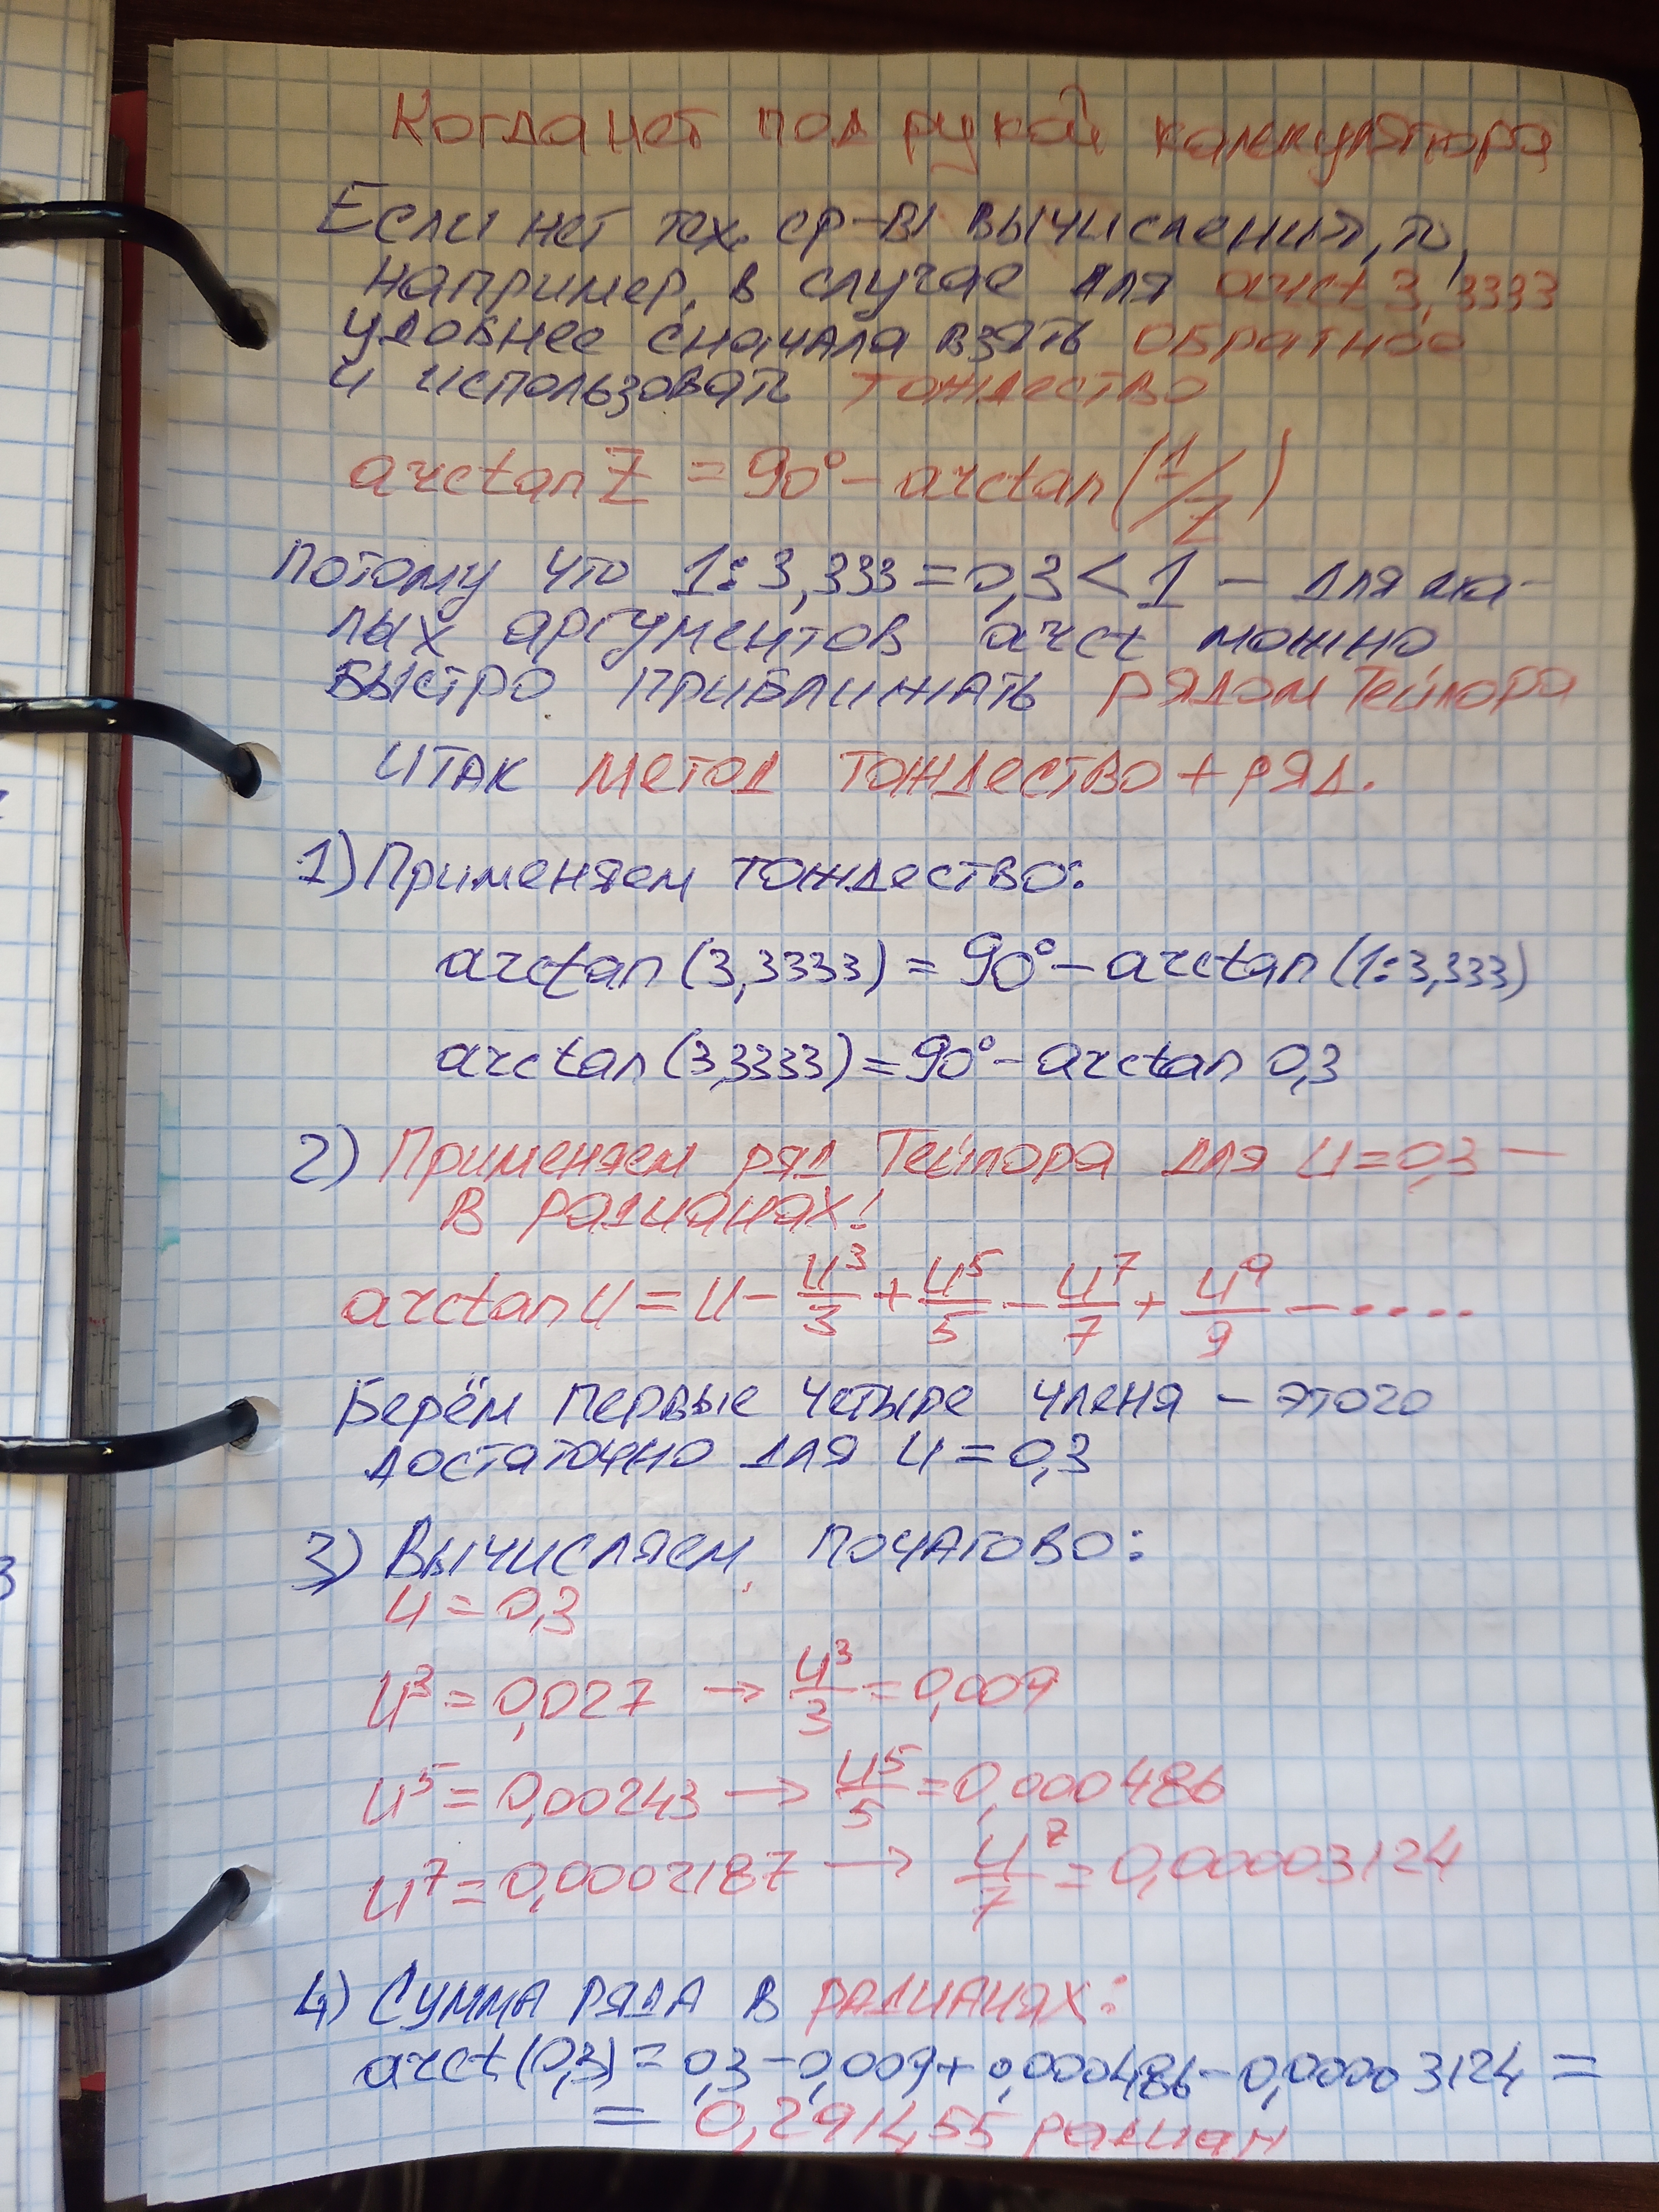 Когда нет под рукой калькулятора
Если нет тех. ср-в вычисления, то,
например, в случае для arct 3,3333
удобнее сначала взять обратное
и использовать тождество
arctan Z = 90° - arctan (1/Z)
потому что 1:3,333 = 0,3 < 1 - для ма-
лых аргументов arct можно
быстро приближать рядом Тейлора
Итак метод тождество + ряд.
1) Применяем тождество:
arctan (3,3333) = 90° - arctan (1:3,333)
arctan (3,3333) = 90° - arctan 0,3
2) Применяем ряд Тейлора для u = 0,3 -
в радианах!
arctan u = u - u³/3 + u⁵/5 - u⁷/7 + u⁹/9 - ....
Берём первые четыре члена - этого
достаточно для u = 0,3
3) Вычисляем пошагово:
u = 0,3
u³ = 0,027 → u³/3 = 0,009
u⁵ = 0,00243 → u⁵/5 = 0,000486
u⁷ = 0,0002187 → u⁷/7 = 0,00003124
4) Сумма ряда в радианах:
arct (0,3) = 0,3 - 0,009 + 0,000486 - 0,00003124 =
= 0,291455 радиан